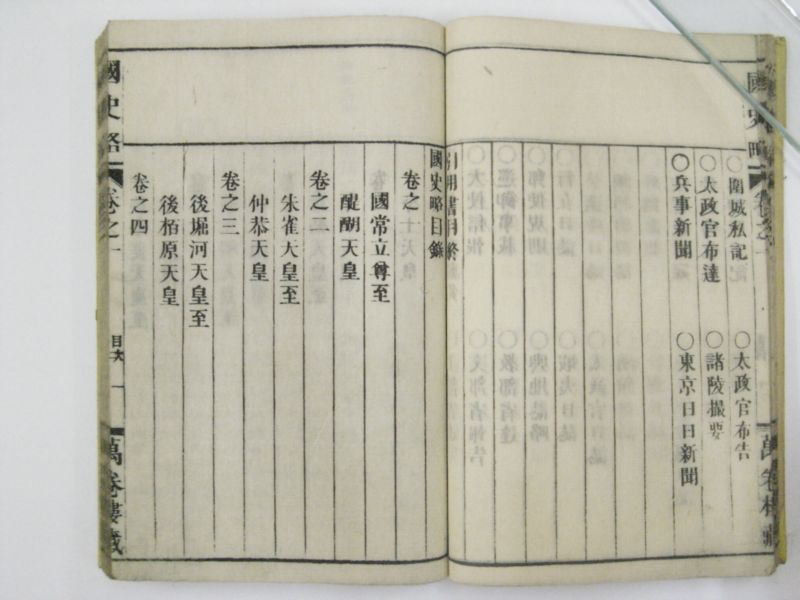 國史略
卷之一
萬卷樓藏
○圍城私記　○太政官布告
○太政官布達　○諸陵撮要
○兵事新聞　○東京日日新聞
引用書目終
國史略目錄
卷之一
國常立尊至
醍醐天皇
卷之二
朱雀天皇至
仲恭天皇
卷之三
後堀河天皇至
後栢原天皇
卷之四
國史略
卷之一
目次
一
萬卷樓藏